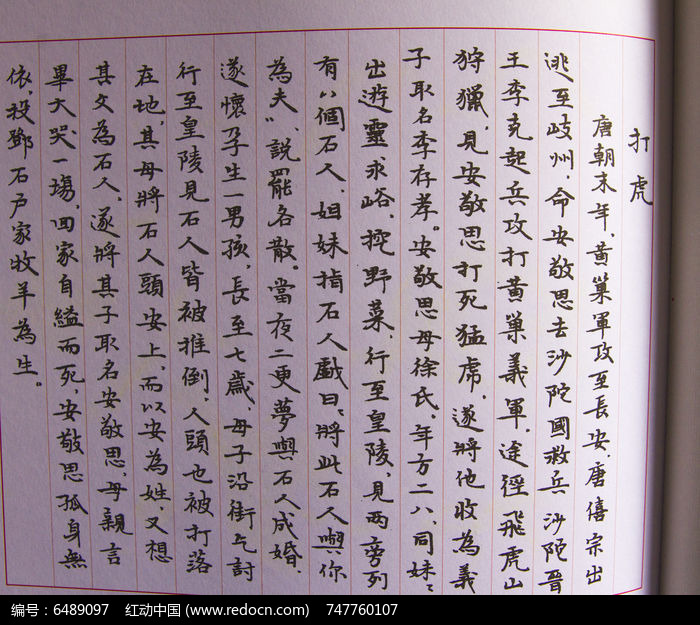 打虎
唐朝末年、黄巢軍攻至長安、唐僖宗出
逃至岐州，命安敬思去沙陀國救兵沙陀晉
王李克起兵攻打黄巢義軍，途徑飛虎山
狩獵，見安敬思打死猛虎，遂將他收為義
子取名李存孝。安敬思母徐氏。年方二八、同妹、
出遊靈求峪、挖野菜，行至皇陵，見两旁列
有八個石人、姐妹指石人戲曰：將此石人與你
為夫"、說罷各散。當夜二更夢與石人成婚、
遂懷孕生一男孩，長至七歲、母子沿街乞討
行至皇陵見石人皆被推倒、人頭也被打落
在地，其母將石人頭安上，而以安為姓，又想
其父為石人、遂將其子取名安敬思、母親言
畢大哭一塲，回家自縊而死，安敬思孤身無
依，投鄧石户家牧羊為生。
编号：6489097 红动中国 (www.redocn.com) 747760107